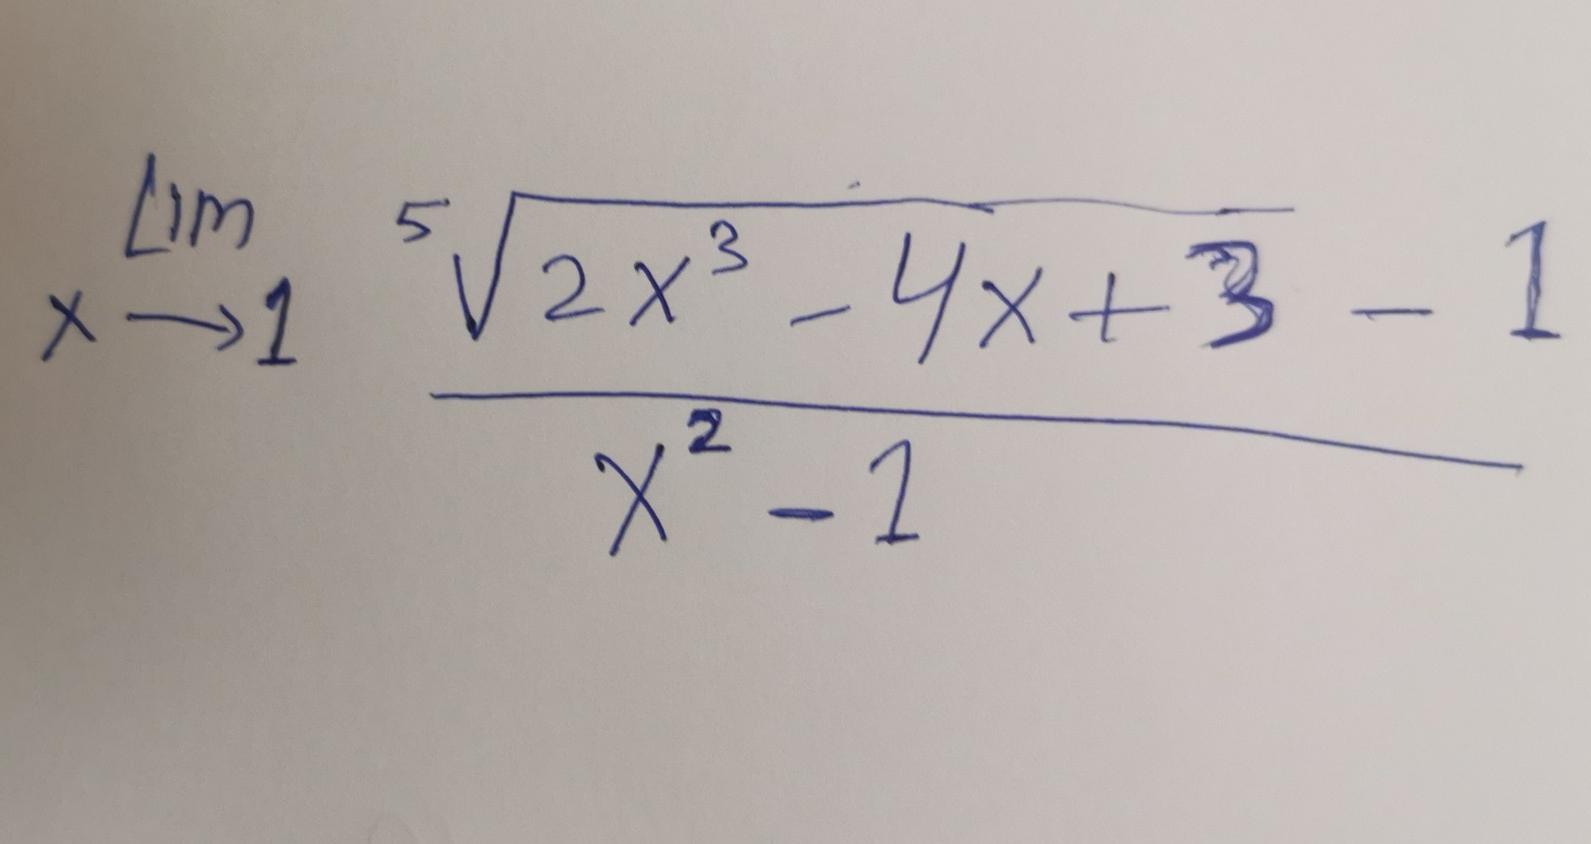 Lim x→1 (⁵√(2x³ - 4x + 3) - 1) / (x² - 1)